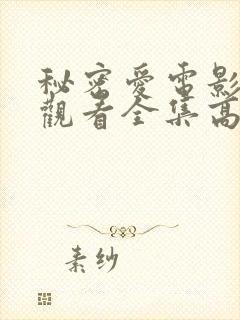 秘密愛電影
觀看全集高
素紗